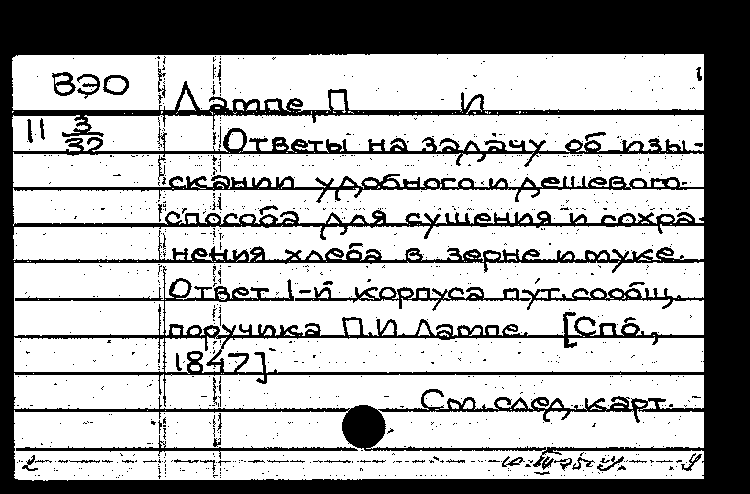 ВЭО
Лампе, П И
11 3/32
Ответы на задачу об изы-
скании удобного и дешевого
способа для сушения и сохра-
нения хлеба в зерне и муке.
Ответ 1-й корпуса пут. сообщ.
поручика П.И. Лампе. [Спб.,
1847].
См. след. карт.
2